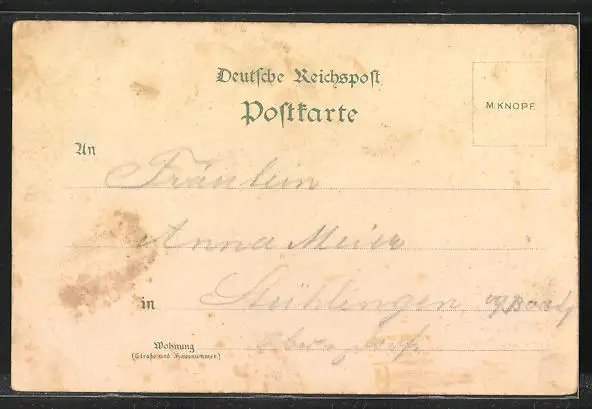 Deutsche Reichspost
Postkarte
M. KNOPF.
An
Fräulein
Anna Meier
in Stühlingen
Wohnung
(Straße und Hausnummer)